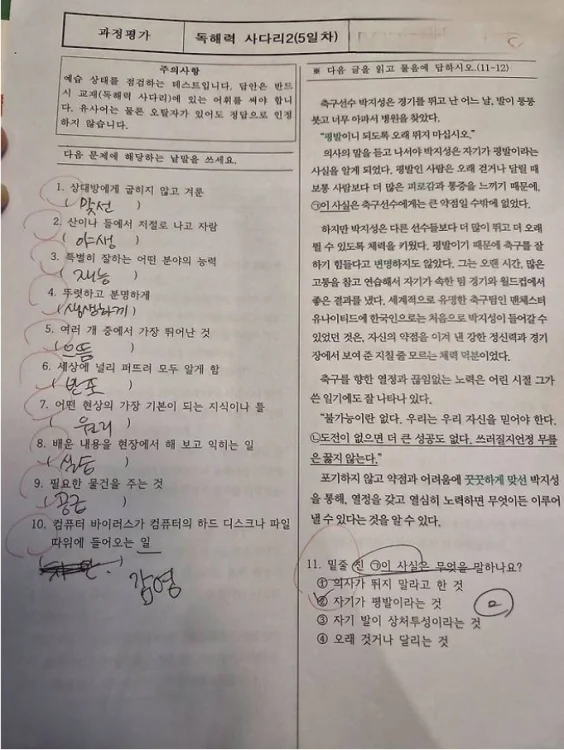 과정평가
독해력 사다리2(5일차)
주의사항
예습 상태를 점검하는 테스트입니다. 답안은 반드
시 교재(독해력 사다리)에 있는 어휘를 써야 합니
다. 유사어는 물론 오탈자가 있어도 정답으로 인정
하지 않습니다.
다음 문제에 해당하는 낱말을 쓰세요.
1. 상대방에게 굽히지 않고 겨룸
( 맞선 )
2. 산이나 들에서 저절로 나고 자람
( 야생 )
3. 특별히 잘하는 어떤 분야의 능력
( 재능 )
4. 뚜렷하고 분명하게
( 생생하게 )
5. 여러 개 중에서 가장 뛰어난 것
( 으뜸 )
6. 세상에 널리 퍼뜨려 모두 알게 함
( 반포 )
7. 어떤 현상의 가장 기본이 되는 지식이나 틀
( 원리 )
8. 배운 내용을 현장에서 해 보고 익히는 일
( 실습 )
9. 필요한 물건을 주는 것
( 공급 )
10. 컴퓨터 바이러스가 컴퓨터의 하드 디스크나 파일
따위에 들어오는 일
감염
※ 다음 글을 읽고 물음에 답하시오.(11-12)
축구선수 박지성은 경기를 뛰고 난 어느 날, 발이 퉁퉁
붓고 너무 아파서 병원을 찾았다.
"평발이니 되도록 오래 뛰지 마십시오."
의사의 말을 듣고 나서야 박지성은 자기가 평발이라는
사실을 알게 되었다. 평발인 사람은 오래 걷거나 달릴 때
보통 사람보다 더 많은 피로감과 통증을 느끼기 때문에,
㉠이 사실은 축구선수에게는 큰 약점일 수밖에 없었다.
하지만 박지성은 다른 선수들보다 더 많이 뛰고 더 오래
뛸 수 있도록 체력을 키웠다. 평발이기 때문에 축구를 잘
하기 힘들다고 변명하지도 않았다. 그는 오랜 시간, 많은
고통을 참고 연습해서 자기가 속한 팀 경기와 월드컵에서
좋은 결과를 냈다. 세계적으로 유명한 축구팀인 맨체스터
유나이티드에 한국인으로는 처음으로 박지성이 들어갈 수
있었던 것은, 자신의 약점을 이겨 낸 강한 정신력과 경기
장에서 보여 준 지칠 줄 모르는 체력 덕분이었다.
축구를 향한 열정과 끊임없는 노력은 어린 시절 그가
쓴 일기에도 잘 나타나 있다.
"불가능이란 없다. 우리는 우리 자신을 믿어야 한다.
㉡도전이 없으면 더 큰 성공도 없다. 쓰러질지언정 무릎
은 꿇지 않는다."
포기하지 않고 약점과 어려움에 꿋꿋하게 맞선 박지성
을 통해, 열정을 갖고 열심히 노력하면 무엇이든 이루어
낼 수 있다는 것을 알 수 있다.
11. 밑줄 친 ㉠이 사실은 무엇을 말하나요?
① 의사가 뛰지 말라고 한 것
② 자기가 평발이라는 것
③ 자기 발이 상처투성이라는 것
④ 오래 걷거나 달리는 것
②